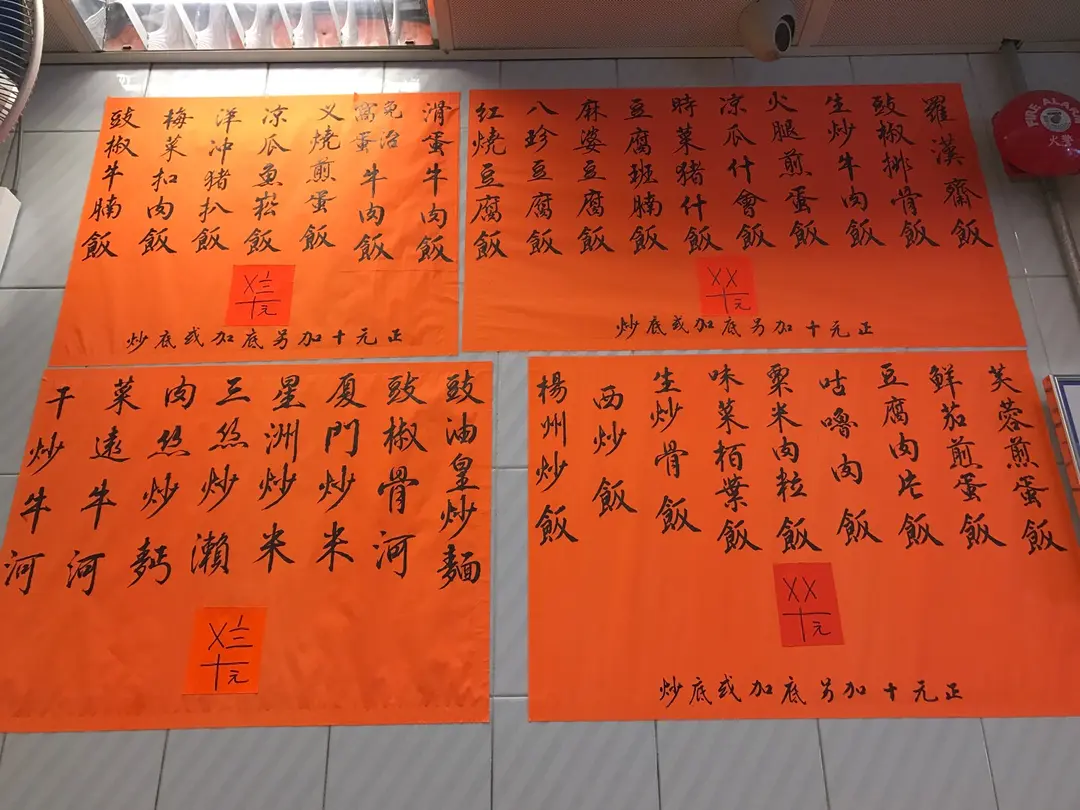 羅漢齋飯
豉椒排骨飯
生炒牛肉飯
火腿煎蛋飯
凉瓜什會飯
時菜猪什飯
豆腐班腩飯
麻婆豆腐飯
八珍豆腐飯
紅燒豆腐飯
〤〤
十元
炒底或加底另加十元正
滑蛋牛肉飯
免治窩蛋牛肉飯
叉燒煎蛋飯
凉瓜魚崧飯
洋冲猪扒飯
梅菜扣肉飯
豉椒牛腩飯
〤〨
十元
炒底或加底另加十元正
芙蓉煎蛋飯
鮮茄煎蛋飯
豆腐肉片飯
咕嚕肉飯
粟米肉粒飯
味菜栢葉飯
生炒骨飯
西炒飯
楊州炒飯
〤〤
十元
炒底或加底另加十元正
豉油皇炒麵
豉椒骨河
厦門炒米
星洲炒米
三絲炒瀨
肉絲炒麫
菜遠牛河
干炒牛河
〤〨
十元
FIRE ALARM
火警